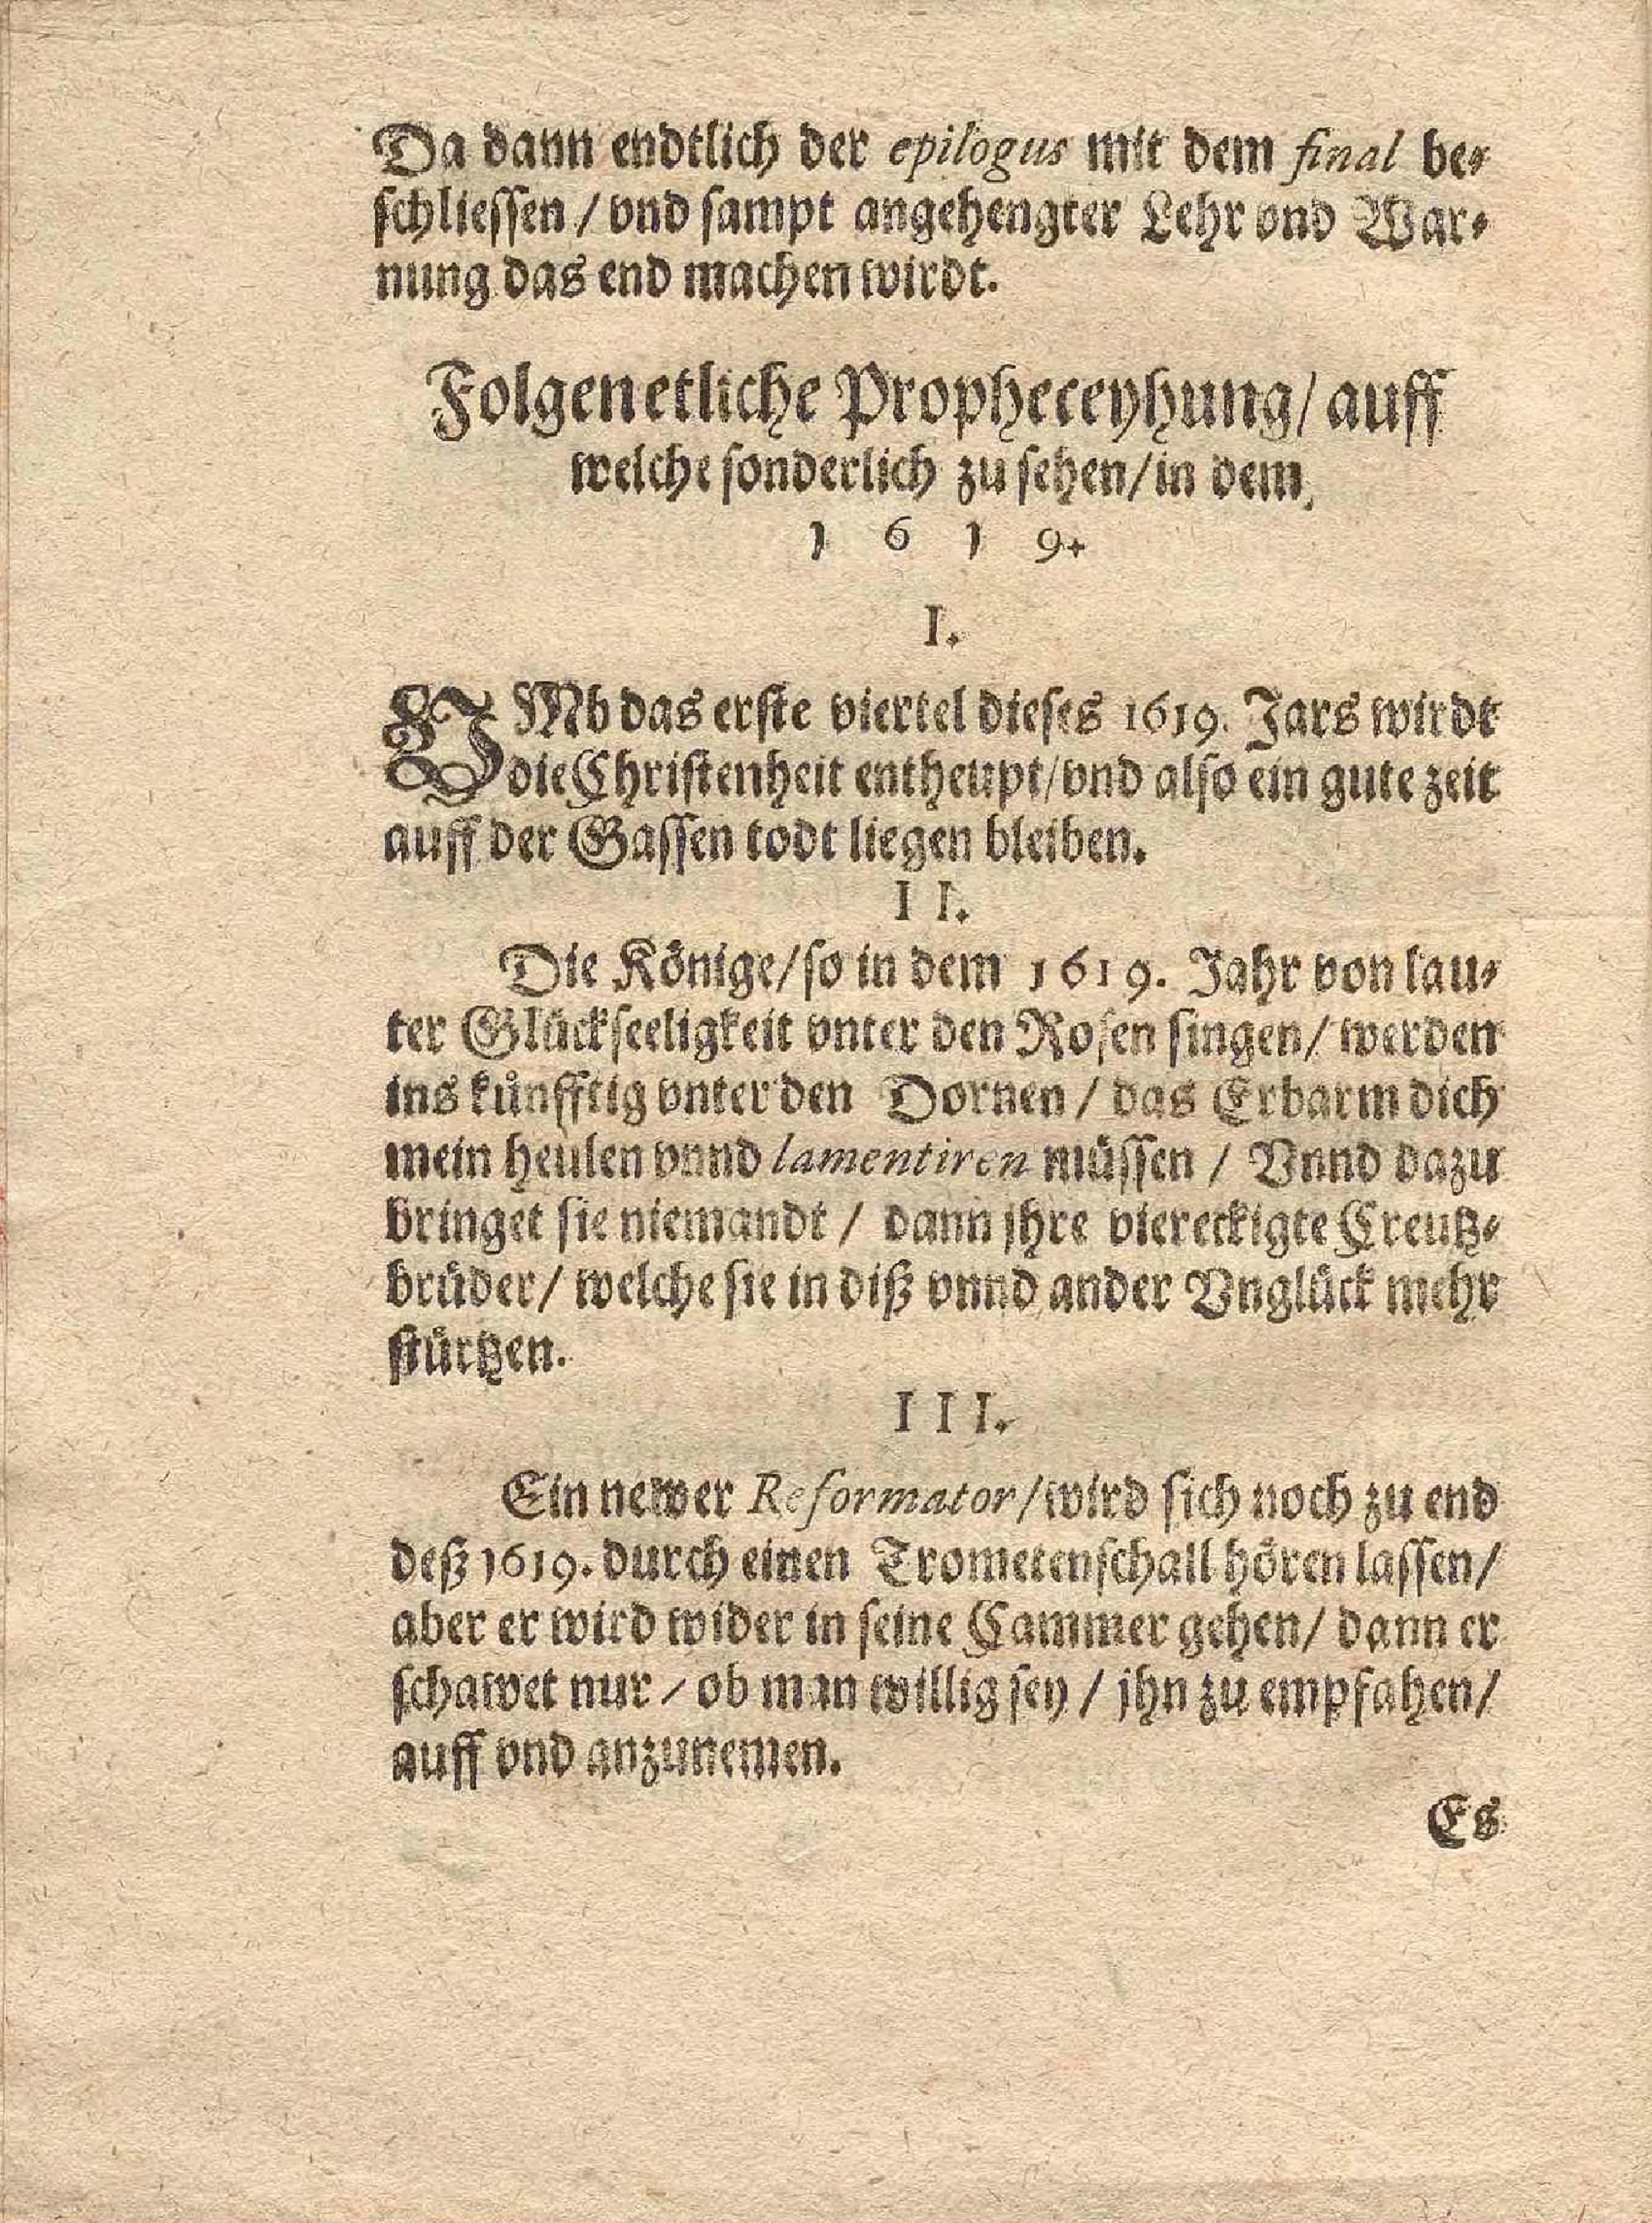 Da dann endtlich der epilogus mit dem final be-
schliessen / vnd sampt angehengter Lehr vnd War-
nung das end machen wirdt.
Folgen etliche Propheceyhung / auff
welche sonderlich zu sehen / in dem
1 6 1 9.
I.
VMb das erste viertel dieses 1619. Jars wirdt
die Christenheit entheupt / vnd also ein gute zeit
auff der Gassen todt liegen bleiben.
I I.
Die Könige / so in dem 1619. Jahr von lau-
ter Glückseeligkeit vnter den Rosen singen / werden
ins künfftig vnter den Dornen / das Erbarm dich
mein heulen vnnd lamentiren müssen / Vnnd dazu
bringet sie niemandt / dann jhre viereckigte Creutz-
brüder / welche sie in diß vnnd ander Vnglück mehr
stürtzen.
I I I.
Ein newer Reformator / wird sich noch zu end
deß 1619. durch einen Trometenschall hören lassen /
aber er wird wider in seine Cammer gehen / dann er
schawet nur / ob man willig sey / jhn zu empfahen /
auff vnd anzunemen.
Es